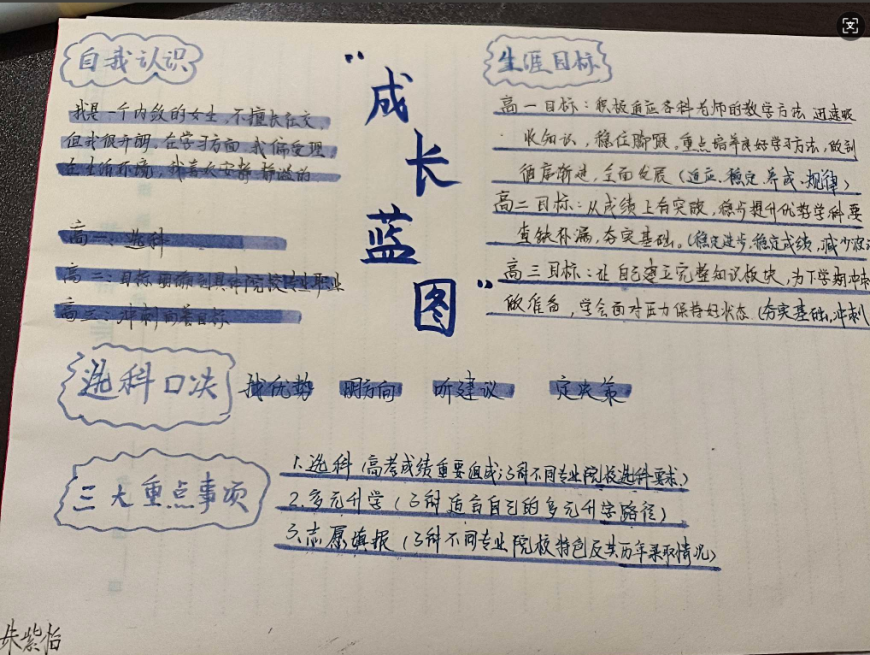 自我认识
我是一个内敛的女生,不擅长社交,
但我很开朗,在学习方面,我偏受理,
在生活环境,我喜欢安静 静谧的.
高一:选科
高二:目标明确到具体院校专业职业
高三:冲刺向着目标
"成长蓝图"
生涯目标
高一目标:积极适应各科老师的教学方法 迅速吸
收知识,稳住脚跟,重点培养良好学习方法,做到
循序渐进,全面发展(适应、稳定、养成、规律)
高二目标:从成绩上有突破,稳步提升优势学科 要
查缺补漏,夯实基础.(稳定进步,稳定成绩,减少
高三目标:让自己建立完整知识板块,为下学期冲
做准备,学会面对压力保持好状态.(夯实基础,冲刺
选科口决
找优势 明方向 听建议 定决策
三大重点事项
1.选科(高考成绩重要组成;了解不同专业院校选科要求)
2.多元升学(了解适合自己的多元升学路径)
3.志愿填报(了解不同专业院校特色及其历年录取情况)
朱紫怡